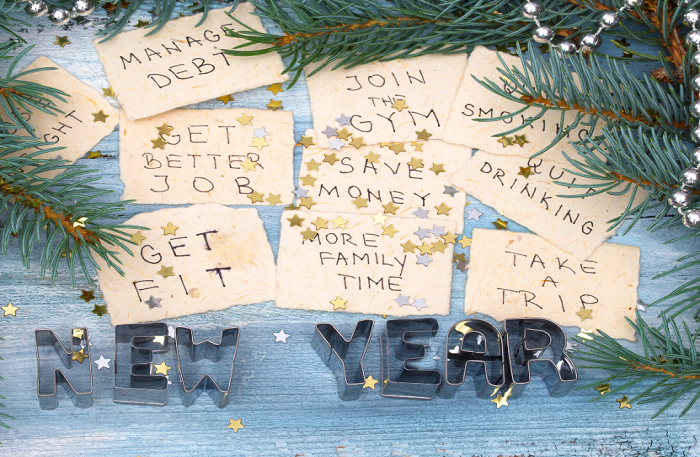 MANAGE
DEBT
JOIN
THE
GYM
SMOKING
GHT
GET
BETTER
JOB
SAVE
MONEY
QUIT
DRINKING
GET
FIT
MORE
FAMILY
TIME
TAKE
A
TRIP
NEW YEAR